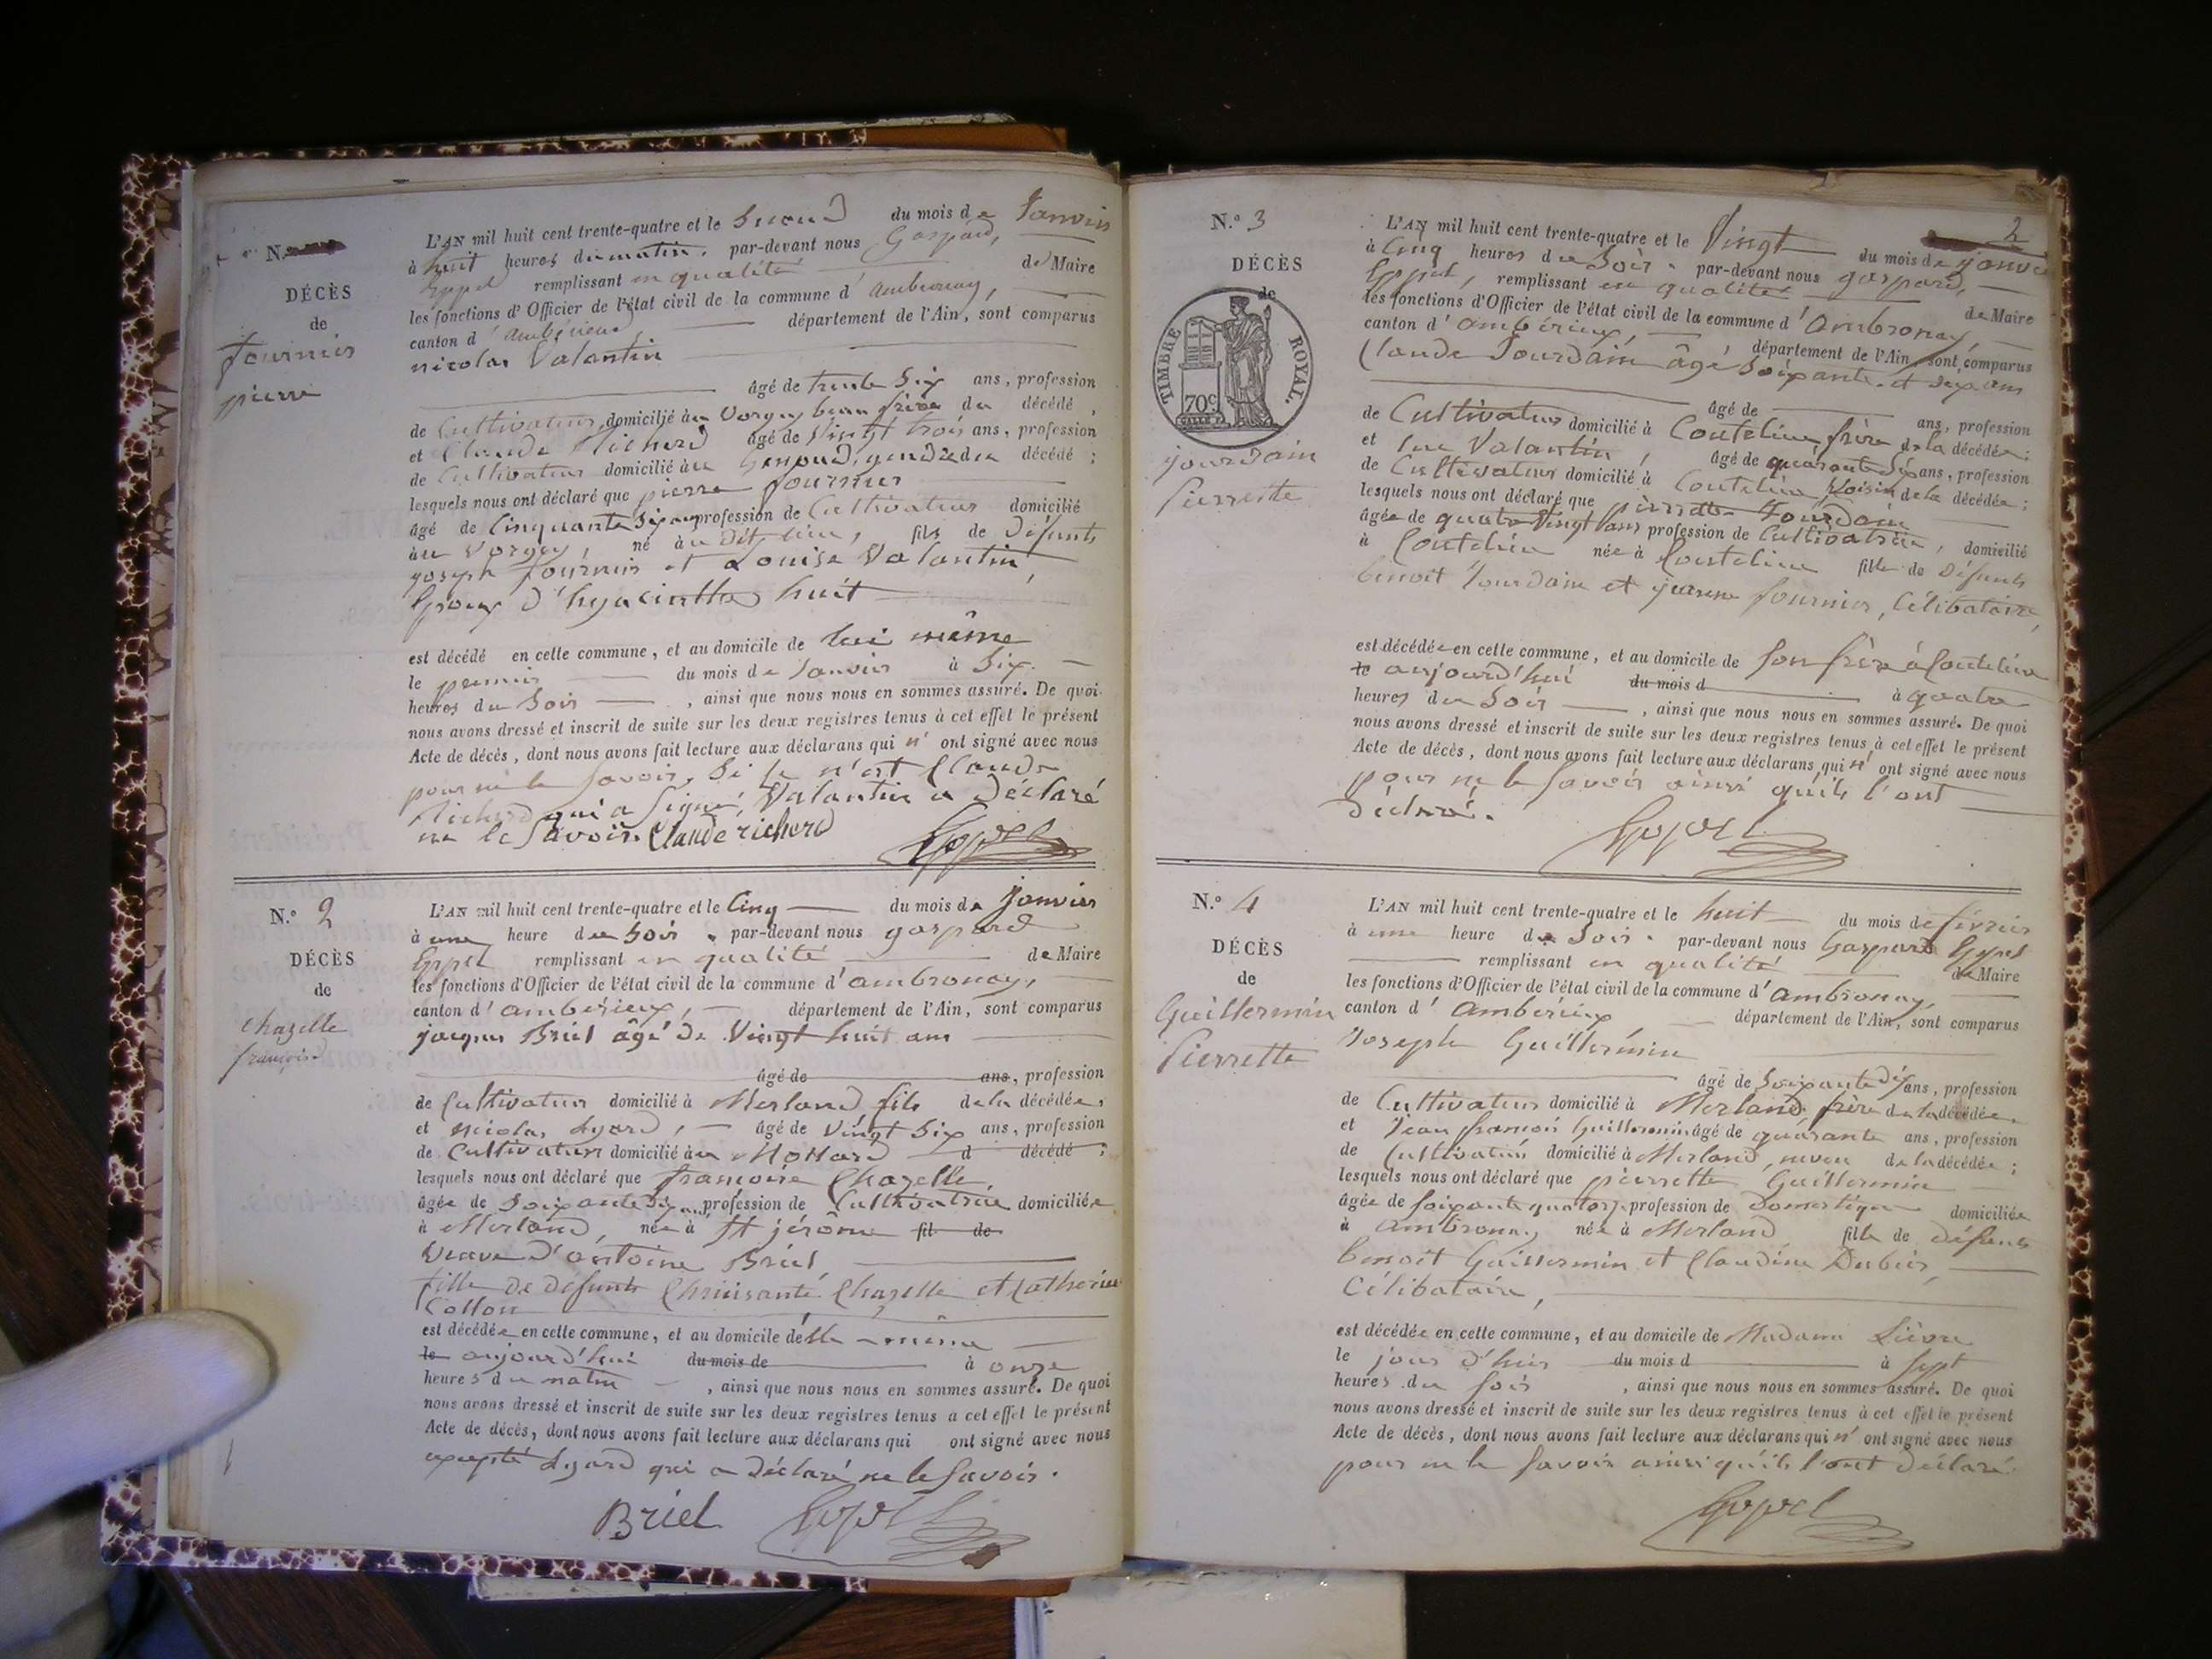 N.
DÉCÈS
de
fournier
pierre
L'AN mil huit cent trente-quatre et le Second du mois de Janvier
à huit heures du matin. par-devant nous Gaspard,
Eppel remplissant en qualité de Maire
les fonctions d'Officier de l'état civil de la commune d'ambronay,
canton d'ambérieux, département de l'Ain, sont comparus
nicolas Valantin
âgé de trente Six ans, profession
de Cultivateur, domicilié au Vorgey beau frère du décédé,
et Claude Richerd âgé de Vingt trois ans, profession
de Cultivateur domicilié au Genoud, gendre du décédé;
lesquels nous ont déclaré que pierre fournier
âgé de Cinquante Six ans profession de Cultivateur domicilié
au Vorgey, né au dit lieu, fils de Défunts
joseph fournier et Louise Valantin,
Epoux d'hyacinthe huit
est décédé en cette commune, et au domicile de lui même
le premier du mois de Janvier à Six
heures du Soir, ainsi que nous nous en sommes assuré. De quoi
nous avons dressé et inscrit de suite sur les deux registres tenus à cet effet le présent
Acte de décès, dont nous avons fait lecture aux déclarans qui n'ont signé avec nous
pour ne le Savoir, Si ce n'est Claude
Richerd qui a Signé, Valantin a Déclaré
ne le Savoir. Claude richerd Eppel
N.º 2
DÉCÈS
de
Chazelle
françoise
L'AN mil huit cent trente-quatre et le Cinq du mois de Janvier
à une heure du Soir. par-devant nous gaspard
Eppel remplissant en qualité de Maire
les fonctions d'Officier de l'état civil de la commune d'ambronay,
canton d'ambérieux, département de l'Ain, sont comparus
jacques Briel âgé de Vingt huit ans
âgé de ans, profession
de Cultivateur domicilié à Merland fils de la décédée,
et nicolas Lyard, âgé de Vingt Six ans, profession
de Cultivateur domicilié au Mollard d décédé;
lesquels nous ont déclaré que francoise Chazelle,
âgée de Soixante Six ans profession de Cultivatrice domiciliée
à Merland, née à St jérôme fil de
Veuve d'antoine Briel,
fille de défunts Chrisante Chazelle et Catherine
Collon
est décédée en cette commune, et au domicile d'elle-même
le aujourd'hui du mois de à onze
heures du matin, ainsi que nous nous en sommes assuré. De quoi
nous avons dressé et inscrit de suite sur les deux registres tenus à cet effet le présent
Acte de décès, dont nous avons fait lecture aux déclarans qui ont signé avec nous
excepté Lyard qui a Déclaré ne le Savoir.
Briel Eppel
2
N.º 3
DÉCÈS
de
TIMBRE ROYAL.
70c
jourdain
Pierrette
L'AN mil huit cent trente-quatre et le Vingt du mois de janvier
à Cinq heures du Soir. par-devant nous gaspard,
Eppel, remplissant en qualité de Maire
les fonctions d'Officier de l'état civil de la commune d'Ambronay,
canton d'ambérieux, département de l'Ain, sont comparus
Claude Jourdain âgé Soixante et dix ans
âgé de ans, profession
de Cultivateur domicilié à Coutelieu frère de la décédée;
et luc Valantin, âgé de quarante Six ans, profession
de Cultivateur domicilié à Coutelieu Voisin de la décédée;
lesquels nous ont déclaré que pierrette Jourdain
âgée de quatre Vingt ans profession de Cultivatrice, domicilié
à Coutelieu née à Coutelieu fille de Défunts
benoit Jourdain et jeanne fournier, Célibataire,
est décédée en cette commune, et au domicile de Son frère à Coutelieu
le aujourd'hui du mois d à quatre
heures du Soir, ainsi que nous nous en sommes assuré. De quoi
nous avons dressé et inscrit de suite sur les deux registres tenus à cet effet le présent
Acte de décès, dont nous avons fait lecture aux déclarans qui n'ont signé avec nous
pour ne le Savoir ainsi qu'ils l'ont
Déclaré. Eppel
N.º 4
DÉCÈS
de
Guillermin
Pierrette
L'AN mil huit cent trente-quatre et le huit du mois de février
à une heure du Soir. par-devant nous Gaspard Eppel
remplissant en qualité de Maire
les fonctions d'Officier de l'état civil de la commune d'Ambronay,
canton d'Ambérieux département de l'Ain, sont comparus
Joseph Guillermin
âgé de Soixante dix ans, profession
de Cultivateur domicilié à Merland frère de la décédée
et Jean francois Guillermin âgé de quarante ans, profession
de Cultivateur domicilié à Merland, neveu de la décédée;
lesquels nous ont déclaré que pierrette Guillermin
âgée de Soixante quatorze profession de Domestique domiciliée
à Ambronay née à Merland fille de défunts
benoit Guillermin et Claudine Dubois,
Célibataire,
est décédée en cette commune, et au domicile de Madame Lièvre
le jour d'hier du mois d à Sept
heures du Soir, ainsi que nous nous en sommes assuré. De quoi
nous avons dressé et inscrit de suite sur les deux registres tenus à cet effet le présent
Acte de décès, dont nous avons fait lecture aux déclarans qui n'ont signé avec nous
pour ne le Savoir ainsi qu'ils l'ont Déclaré.
Eppel